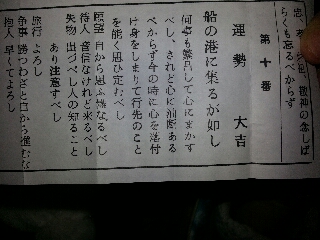 忠 孝 神の念しば
らくも忘るべからず
第十番
船の港に集るが如し
運勢 大吉
何事も繁昌して心にまかす
べし、されど心に油断ある
べからず今の時に心を落付
け身をしまりて行先のこと
を能く思ひ定むべし
願望 自から思ふ様なるべし
待人 音信なけれど来るべし
失物 出づべし人の知ること
あり注意すべし
旅行 よろし
争事 勝つわざと自から進むな
抱人 早くてよろし